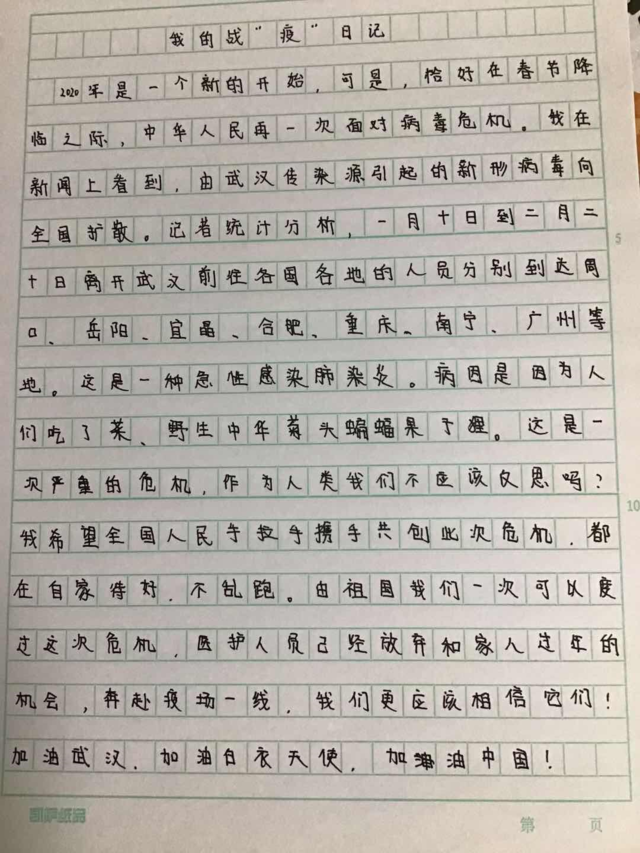 我的战“疫”日记
2020年是一个新的开始，可是，恰好在春节降
临之际，中华人民再一次面对病毒危机。我在
新闻上看到，由武汉传染源引起的新形病毒向
全国扩散。记者统计分析，一月十日到二月二
十日离开武汉前往各国各地的人员分别到达周
口、岳阳、宜昌、合肥、重庆、南宁、广州等
地。这是一种急性感染肺染炎。病因是因为人
们吃了菜、野生中华菊头蝙蝠果子狸。这是一
次严重的危机，作为人类我们不应该反思吗？
我希望全国人民手拉手携手共创此次危机，都
在自家待好，不乱跑。由祖国我们一次可以度
过这次危机，医护人员已经放弃和家人过年的
机会，奔赴疫场一线，我们更应该相信它们！
加油武汉，加油白衣天使，加油中国！
5
10
凯萨纸品
第 页